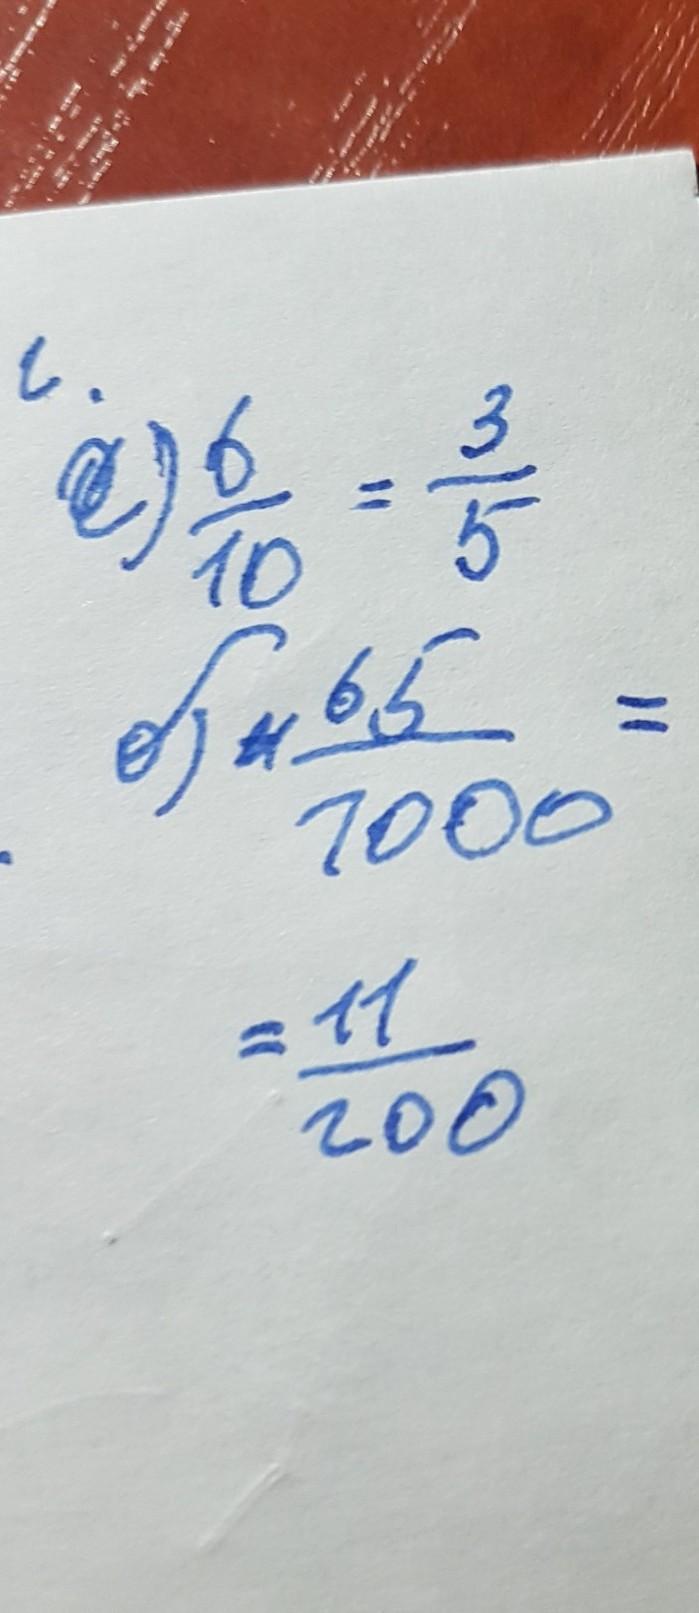 а) 6/10 = 3/5
б) 65/1000 =
= 11/200